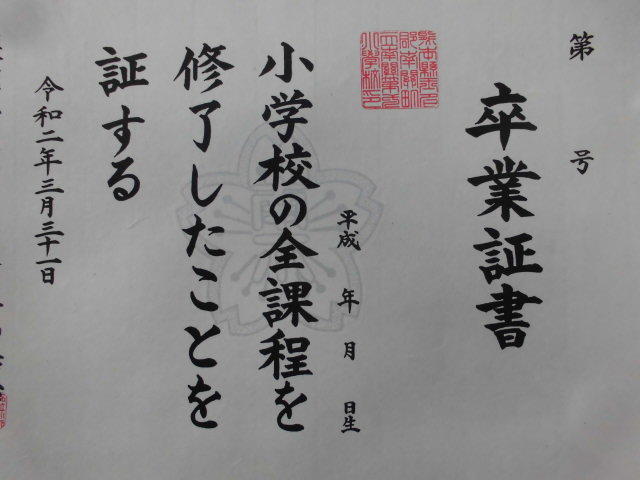 第 号
卒業証書
平成 年 月 日生
小学校の全課程を
修了したことを
証する
令和二年三月三十一日